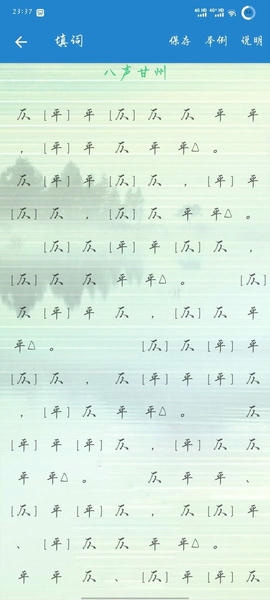 23:37
填词 保存 举例 说明
八声甘州
仄 [平] 平 [仄] 仄 仄 平 平
， [平] 平 仄 平 平△ 。
仄 [平] 平 [仄] 仄 ， [平] 平
[仄] 仄 ， [仄] 仄 平 平△ 。
[仄] 仄 [平] 平 [仄] 仄 ，
[仄] 仄 仄 平 平△ 。 [仄]
仄 平 平 仄 ， [仄] 仄 平
平△ 。 [仄] 仄 [平] 平
[仄] 仄 ， 仄 [平] 平 [平] 仄
， [平] 仄 平 平△ 。 仄
[平] 平 [平] 仄 ， [平] 仄 平
平 平△ 。 仄 平 平 、
[仄] 平 [平] 仄 ， 仄 [仄] 平
、 [平] 仄 仄 平 平△ 。
平 平 仄 、 [仄] 平 [平] 仄